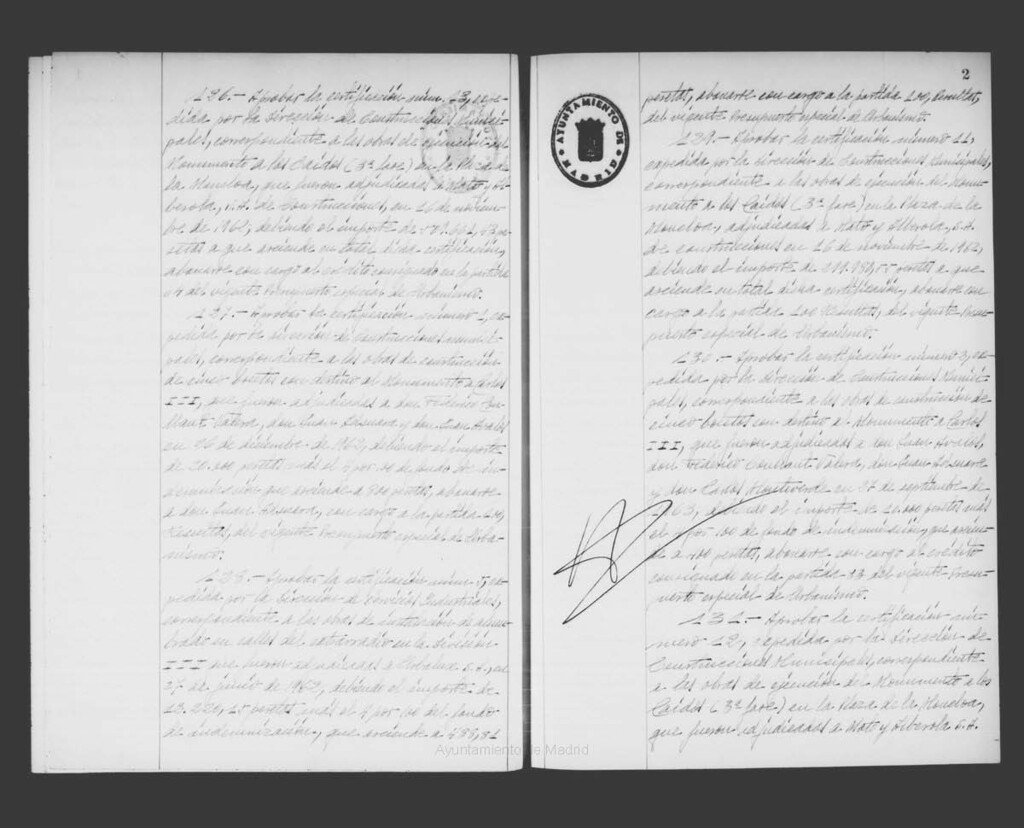 126.- Aprobar la certificación núm. 13, expe-
dida por la Dirección de Construcciones Munici-
pales, correspondiente a las obras de ejecución del
Monumento a los Caídos (3ª fase) en la Plaza de
la Moncloa, que fueron adjudicadas a Mato y Al-
berola, S.A. de Construcciones, en 26 de noviem-
bre de 1962, debiendo el importe de
pesetas a que asciende en total dicha certificación,
abonarse con cargo al crédito consignado en la partida
del vigente Presupuesto especial de Urbanismo.
127.- Aprobar la certificación número 1, ex-
pedida por la Dirección de Construcciones Munici-
pales, correspondiente a las obras de construcción
de cinco bocetos con destino al Monumento a Carlos
III, que fueron adjudicadas a don Federico Cou-
llaut Valera, don Juan y don Juan Avalos
en 26 de diciembre de 1962, debiendo el importe
de 20.000 pesetas más el 4 por 100 de fondo de in-
demnización que asciende a 800 pesetas, abonarse
a don Juan con cargo a la partida 100,
Resultas, del vigente Presupuesto especial de Urba-
nismo.
128.- Aprobar la certificación núm. 5, ex-
pedida por la Dirección de Servicios Industriales,
correspondiente a las obras de instalación de alum-
brado en calles del en la división
III que fueron adjudicadas a S.A., en
27 de junio de 1962, debiendo el importe de
pesetas más el 4 por 100 del fondo
de indemnización, que asciende a
2
AYUNTAMIENTO DE MADRID
pesetas, abonarse con cargo a la partida 100, Resultas,
del vigente Presupuesto especial de Urbanismo.
129.- Aprobar la certificación número 11,
expedida por la Dirección de Construcciones Municipales,
correspondiente a las obras de ejecución del Monu-
mento a los Caídos (3ª fase) en la Plaza de la
Moncloa, adjudicadas a Mato y Alberola, S.A.
de construcciones en 26 de noviembre de 1962,
debiendo el importe de pesetas a que
asciende en total dicha certificación, abonarse con
cargo a la partida 100 Resultas, del vigente Presu-
puesto especial de Urbanismo.
130.- Aprobar la certificación número 2, ex-
pedida por la Dirección de Construcciones Munici-
pales, correspondiente a las obras de construcción de
cinco bocetos con destino al Monumento a Carlos
III, que fueron adjudicadas a don Juan Avalos,
don Federico Coullaut Valera, don Juan
y don Carlos Monteverde en 27 de septiembre de
1963, debiendo el importe de pesetas más
el 4 por 100 de fondo de indemnización, que ascien-
de a pesetas, abonarse con cargo al crédito
consignado en la partida 33 del vigente Presu-
puesto especial de Urbanismo.
131.- Aprobar la certificación nú-
mero 12, expedida por la Dirección de
Construcciones Municipales, correspondiente
a las obras de ejecución del Monumento a los
Caídos (3ª fase) en la Plaza de la Moncloa,
que fueron adjudicadas a Mato y Alberola S.A.
Ayuntamiento de Madrid